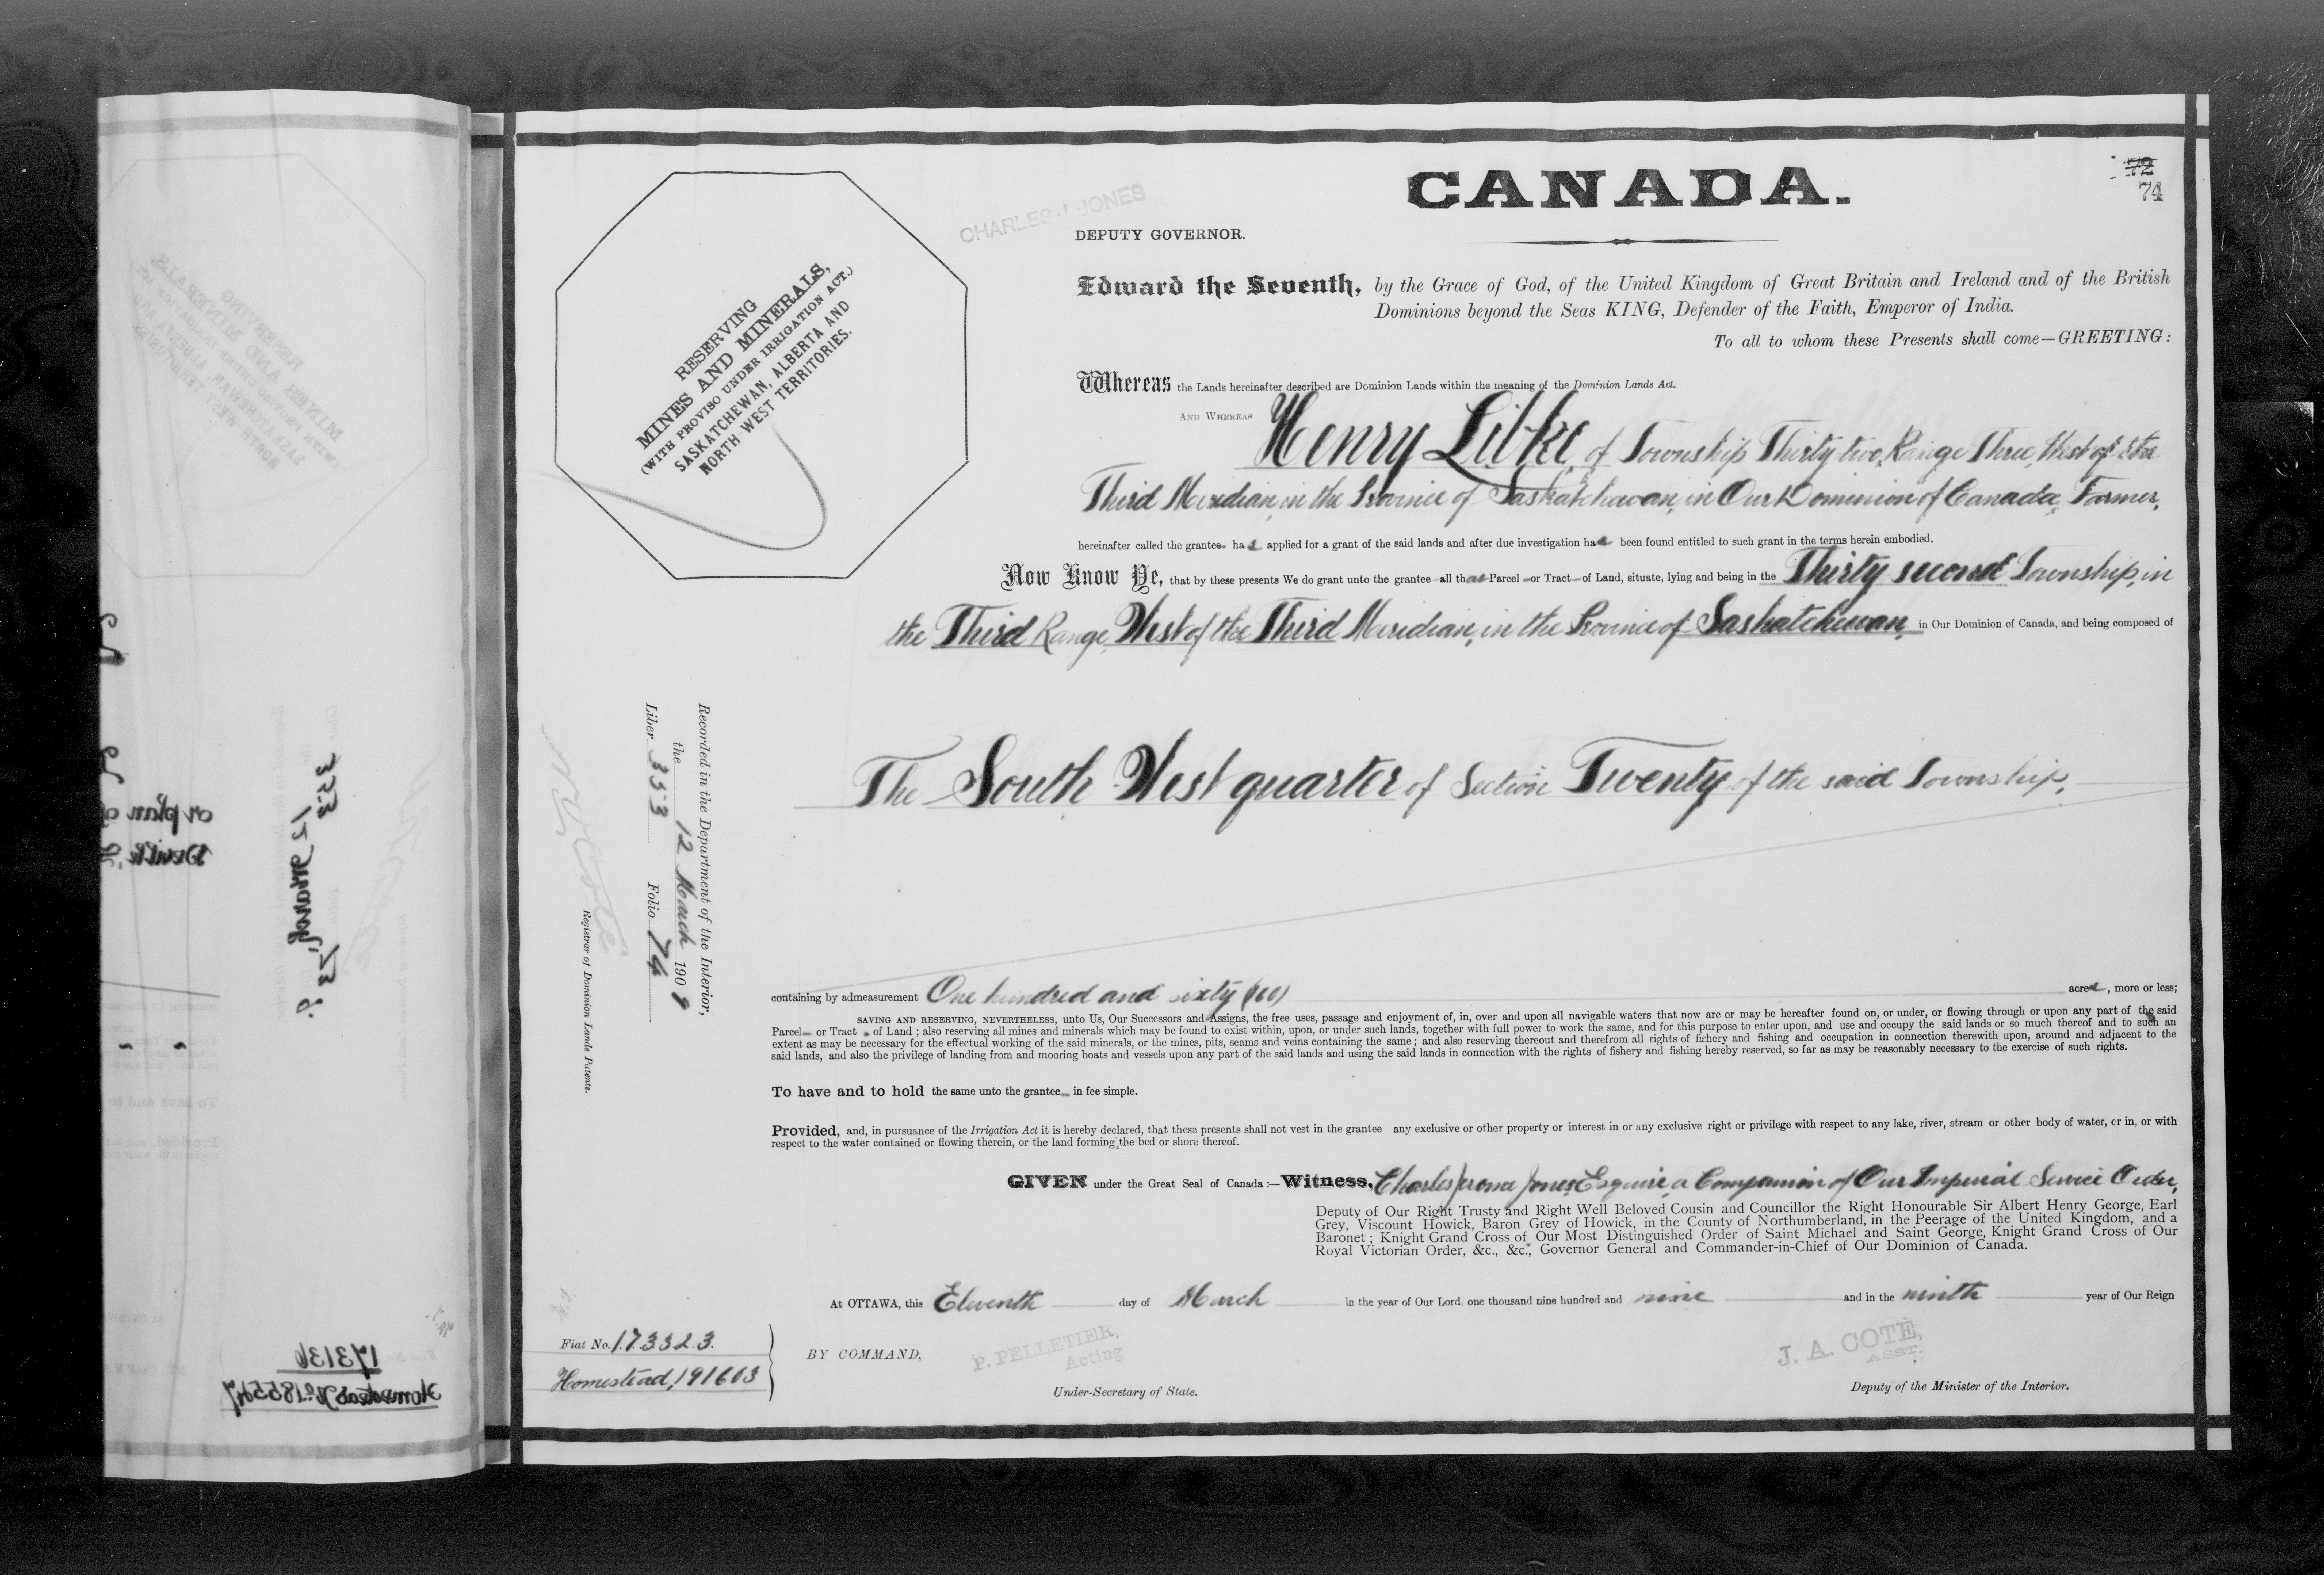 CANADA.
72
74
CHARLES J JONES
DEPUTY GOVERNOR.
RESERVING
MINES AND MINERALS,
(WITH PROVISO UNDER IRRIGATION ACT.)
SASKATCHEWAN, ALBERTA AND
NORTH-WEST TERRITORIES.
Edward the Seventh, by the Grace of God, of the United Kingdom of Great Britain and Ireland and of the British
Dominions beyond the Seas KING, Defender of the Faith, Emperor of India.
To all to whom these Presents shall come—GREETING:
Whereas the Lands hereinafter described are Dominion Lands within the meaning of the Dominion Lands Act.
AND WHEREAS Henry Libke, of Township Thirty two, Range Three, West of the
Third Meridian, in the Province of Saskatchewan, in Our Dominion of Canada, Farmer,
hereinafter called the grantee, has applied for a grant of the said lands and after due investigation has been found entitled to such grant in the terms herein embodied.
Now Know Ye, that by these presents We do grant unto the grantee all that Parcel or Tract of Land, situate, lying and being in the Thirty second Township, in
the Third Range, West of the Third Meridian, in the Province of Saskatchewan, in Our Dominion of Canada, and being composed of
The South West quarter of Section Twenty of the said Township,
Recorded in the Department of the Interior,
the 12 March 1909
Liber 353 Folio 74
Registrar of Dominion Lands Patents.
containing by admeasurement One hundred and sixty (160) acres, more or less;
SAVING AND RESERVING, NEVERTHELESS, unto Us, Our Successors and Assigns, the free uses, passage and enjoyment of, in, over and upon all navigable waters that now are or may be hereafter found on, or under, or flowing through or upon any part of the said
Parcel or Tract of Land; also reserving all mines and minerals which may be found to exist within, upon, or under such lands, together with full power to work the same, and for this purpose to enter upon, and use and occupy the said lands or so much thereof and to such an
extent as may be necessary for the effectual working of the said minerals, or the mines, pits, seams and veins containing the same; and also reserving thereout and therefrom all rights of fishery and fishing and occupation in connection therewith upon, around and adjacent to the
said lands, and also the privilege of landing from and mooring boats and vessels upon any part of the said lands and using the said lands in connection with the rights of fishery and fishing hereby reserved, so far as may be reasonably necessary to the exercise of such rights.
To have and to hold the same unto the grantee in fee simple.
Provided, and, in pursuance of the Irrigation Act it is hereby declared, that these presents shall not vest in the grantee any exclusive or other property or interest in or any exclusive right or privilege with respect to any lake, river, stream or other body of water, or in, or with
respect to the water contained or flowing therein, or the land forming the bed or shore thereof.
GIVEN under the Great Seal of Canada:—Witness, Charles Jerome Jones, Esquire, a Companion of Our Imperial Service Order,
Deputy of Our Right Trusty and Right Well Beloved Cousin and Councillor the Right Honourable Sir Albert Henry George, Earl
Grey, Viscount Howick, Baron Grey of Howick, in the County of Northumberland, in the Peerage of the United Kingdom, and a
Baronet; Knight Grand Cross of Our Most Distinguished Order of Saint Michael and Saint George, Knight Grand Cross of Our
Royal Victorian Order, &c., &c., Governor General and Commander-in-Chief of Our Dominion of Canada.
At OTTAWA, this Eleventh day of March in the year of Our Lord one thousand nine hundred and nine and in the ninth year of Our Reign
Fiat No. 173323.
Homestead, 191603
BY COMMAND,
P. PELLETIER,
Acting
Under-Secretary of State.
J. A. COTÉ,
ASST.
Deputy of the Minister of the Interior.
173136
Homestead No. 185547